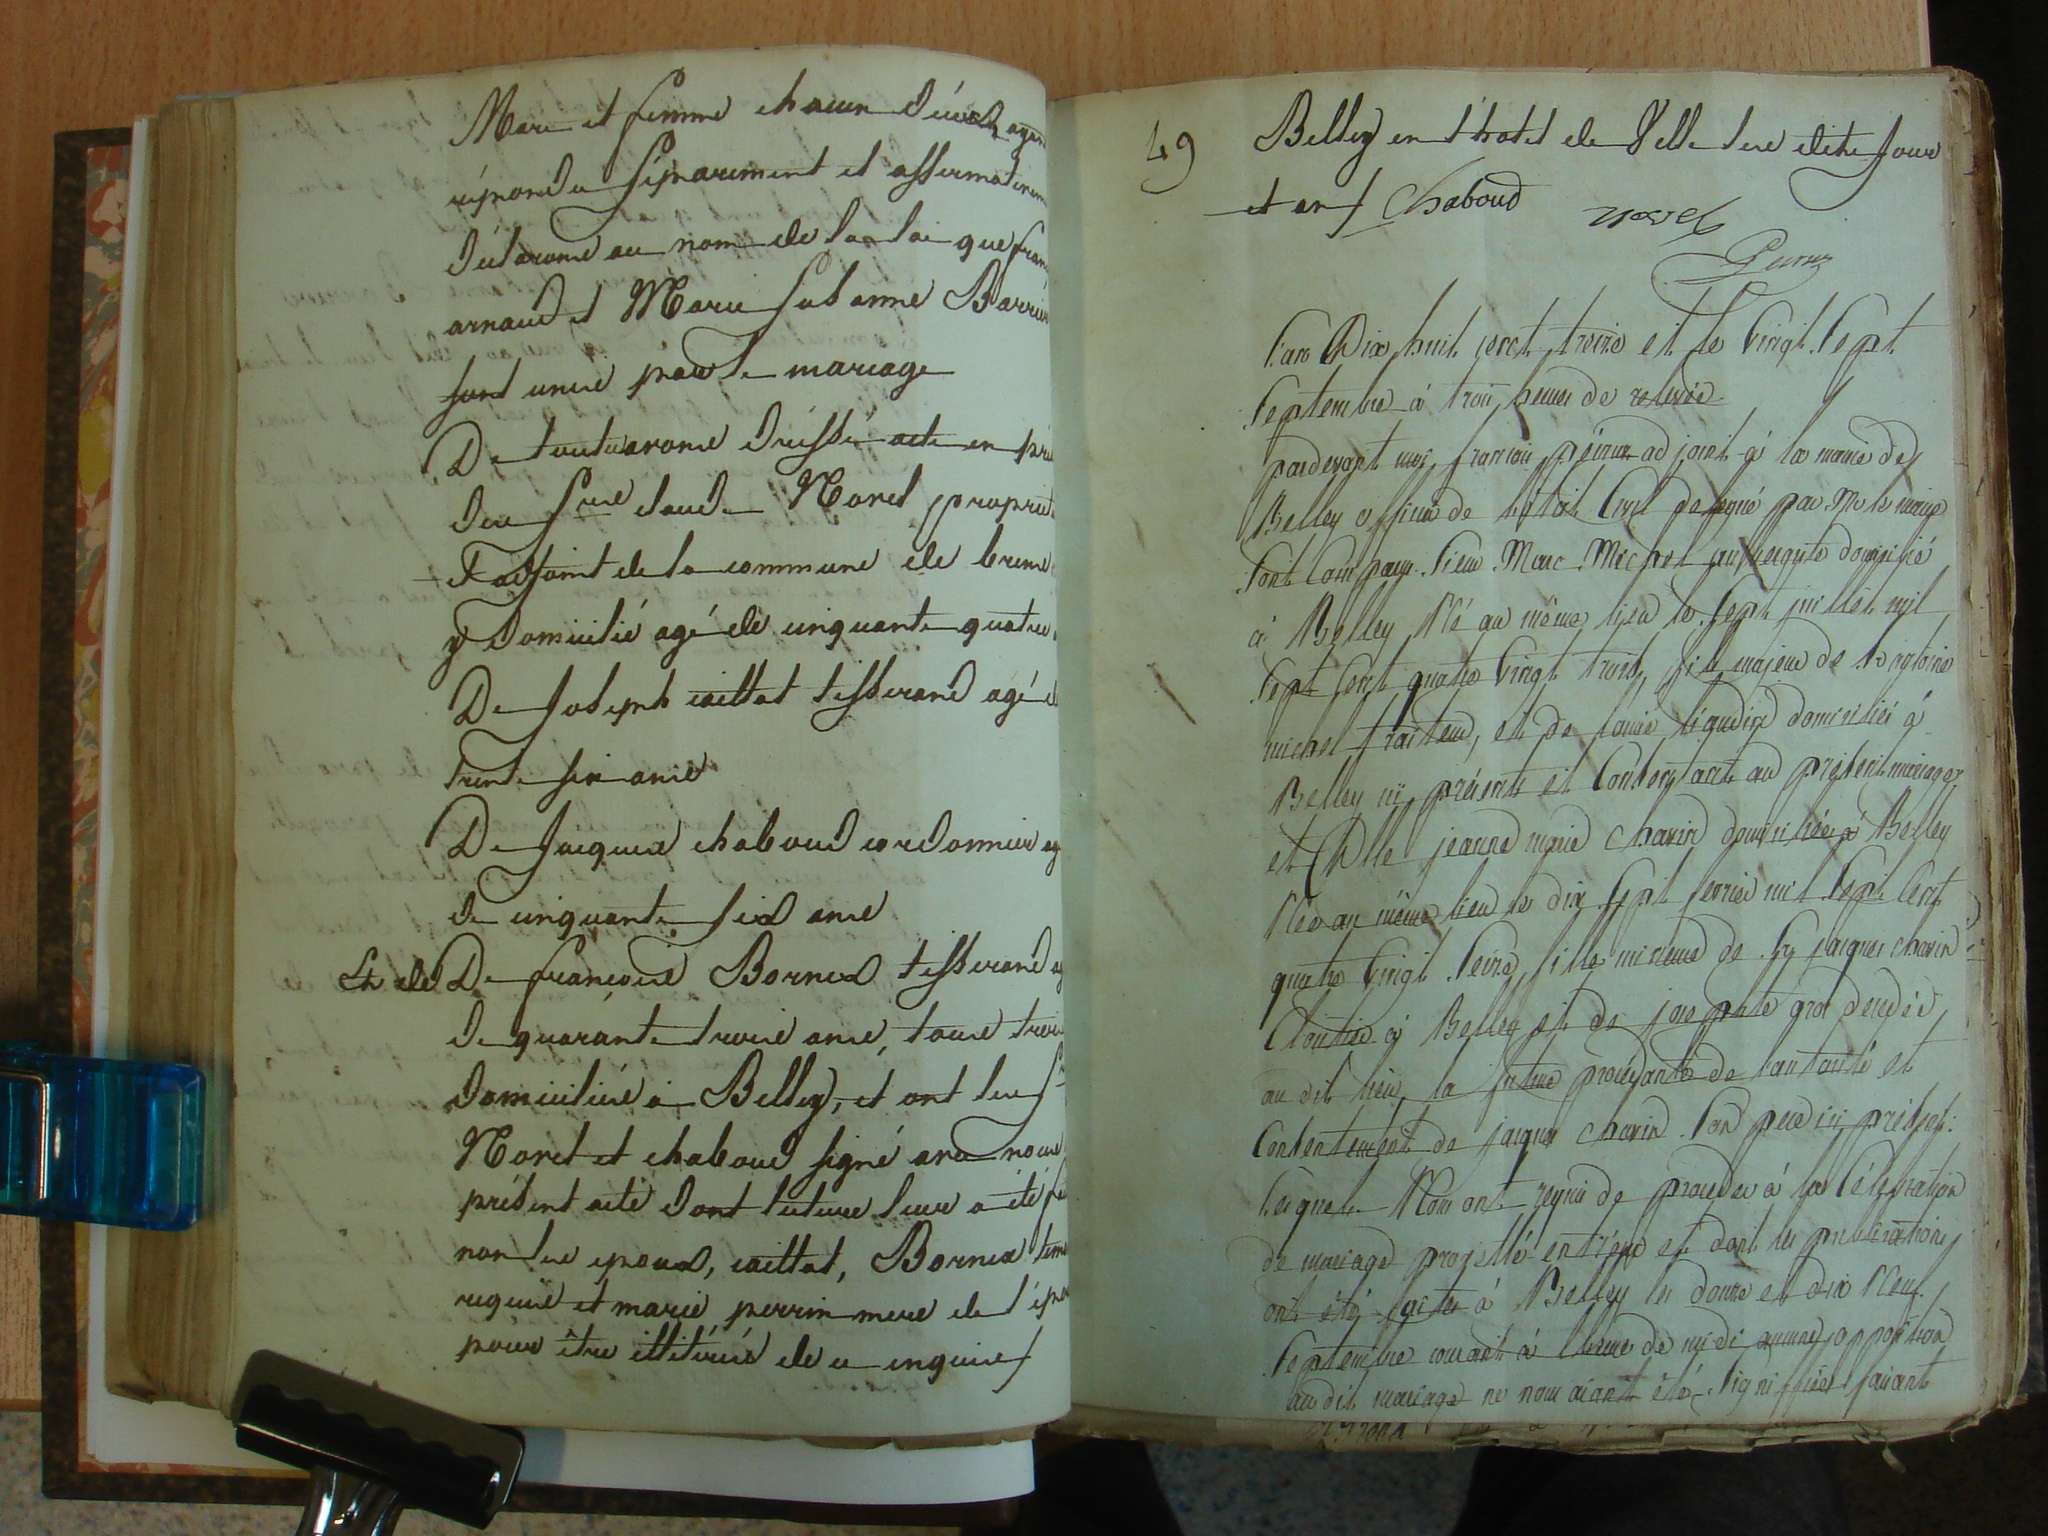 Mari et femme chacun d'eux ayant
répondu séparément et affirmativem
déclarons au nom de la loi que fran
arnaud et Marie Susanne Barrin
sont unis par le mariage
De tout avons dressé acte en pré
du sieur claude Noret propriét
et adjoint de la commune de brens
y Domicilié agé de cinquante quatre
De Joseph caillat tisserand agé d
trente six ans
De Jacques chaboud cordonnier ag
de cinquante six ans
Et de De françois Bornex tisserand ag
de quarante trois ans, tous trois
domiciliés à Belley, et ont les Srs
Noret et chaboud signé avec nous
présent acte dont lecture leur a été fa
non les epoux, caillat, Bornex tem
requis et marie perrin mere de l'épou
pour être illitérés de ce enquis /
49
Belley en l'hotel de Ville lesdits jour
et an / Chaboud
Noret
L'an Dix huit cent treize et le Vingt Sept
Septembre à trois heures de relevée
pardevant moi françois adjoint à la mairie de
Belley officier de l'état Civil délégué par Mr le maire
Sont Comparus Sieur Marc Michel domicilié
à Belley Né au même lieu le Sept juillet mil
Sept Cent quatre Vingt trois, fils majeur de Sr antoine
michel traiteur, et de domiciliés à
Belley ici présents et Consentants au présent mariage
et Dlle jeanne marie Chavin domiciliée à Belley
Née au même lieu le dix Sept fevrier mil Sept Cent
quatre Vingt Seize, fille mineure de Sr jacques chavin
Cloutier à Belley et de josephte décédée
au dit lieu, la future procédante de l'autorité et
Consentement de jacques chavin Son pere ici présent:
Lesquels Nous ont requis de procéder à la Célébration
de mariage projetté entr'eux et dont les publications
ont été faites à Belley les douze et dix Neuf
Septembre courant à l'heure de midi, aucune opposition
au dit mariage ne nous aiant été Signifiée faisant